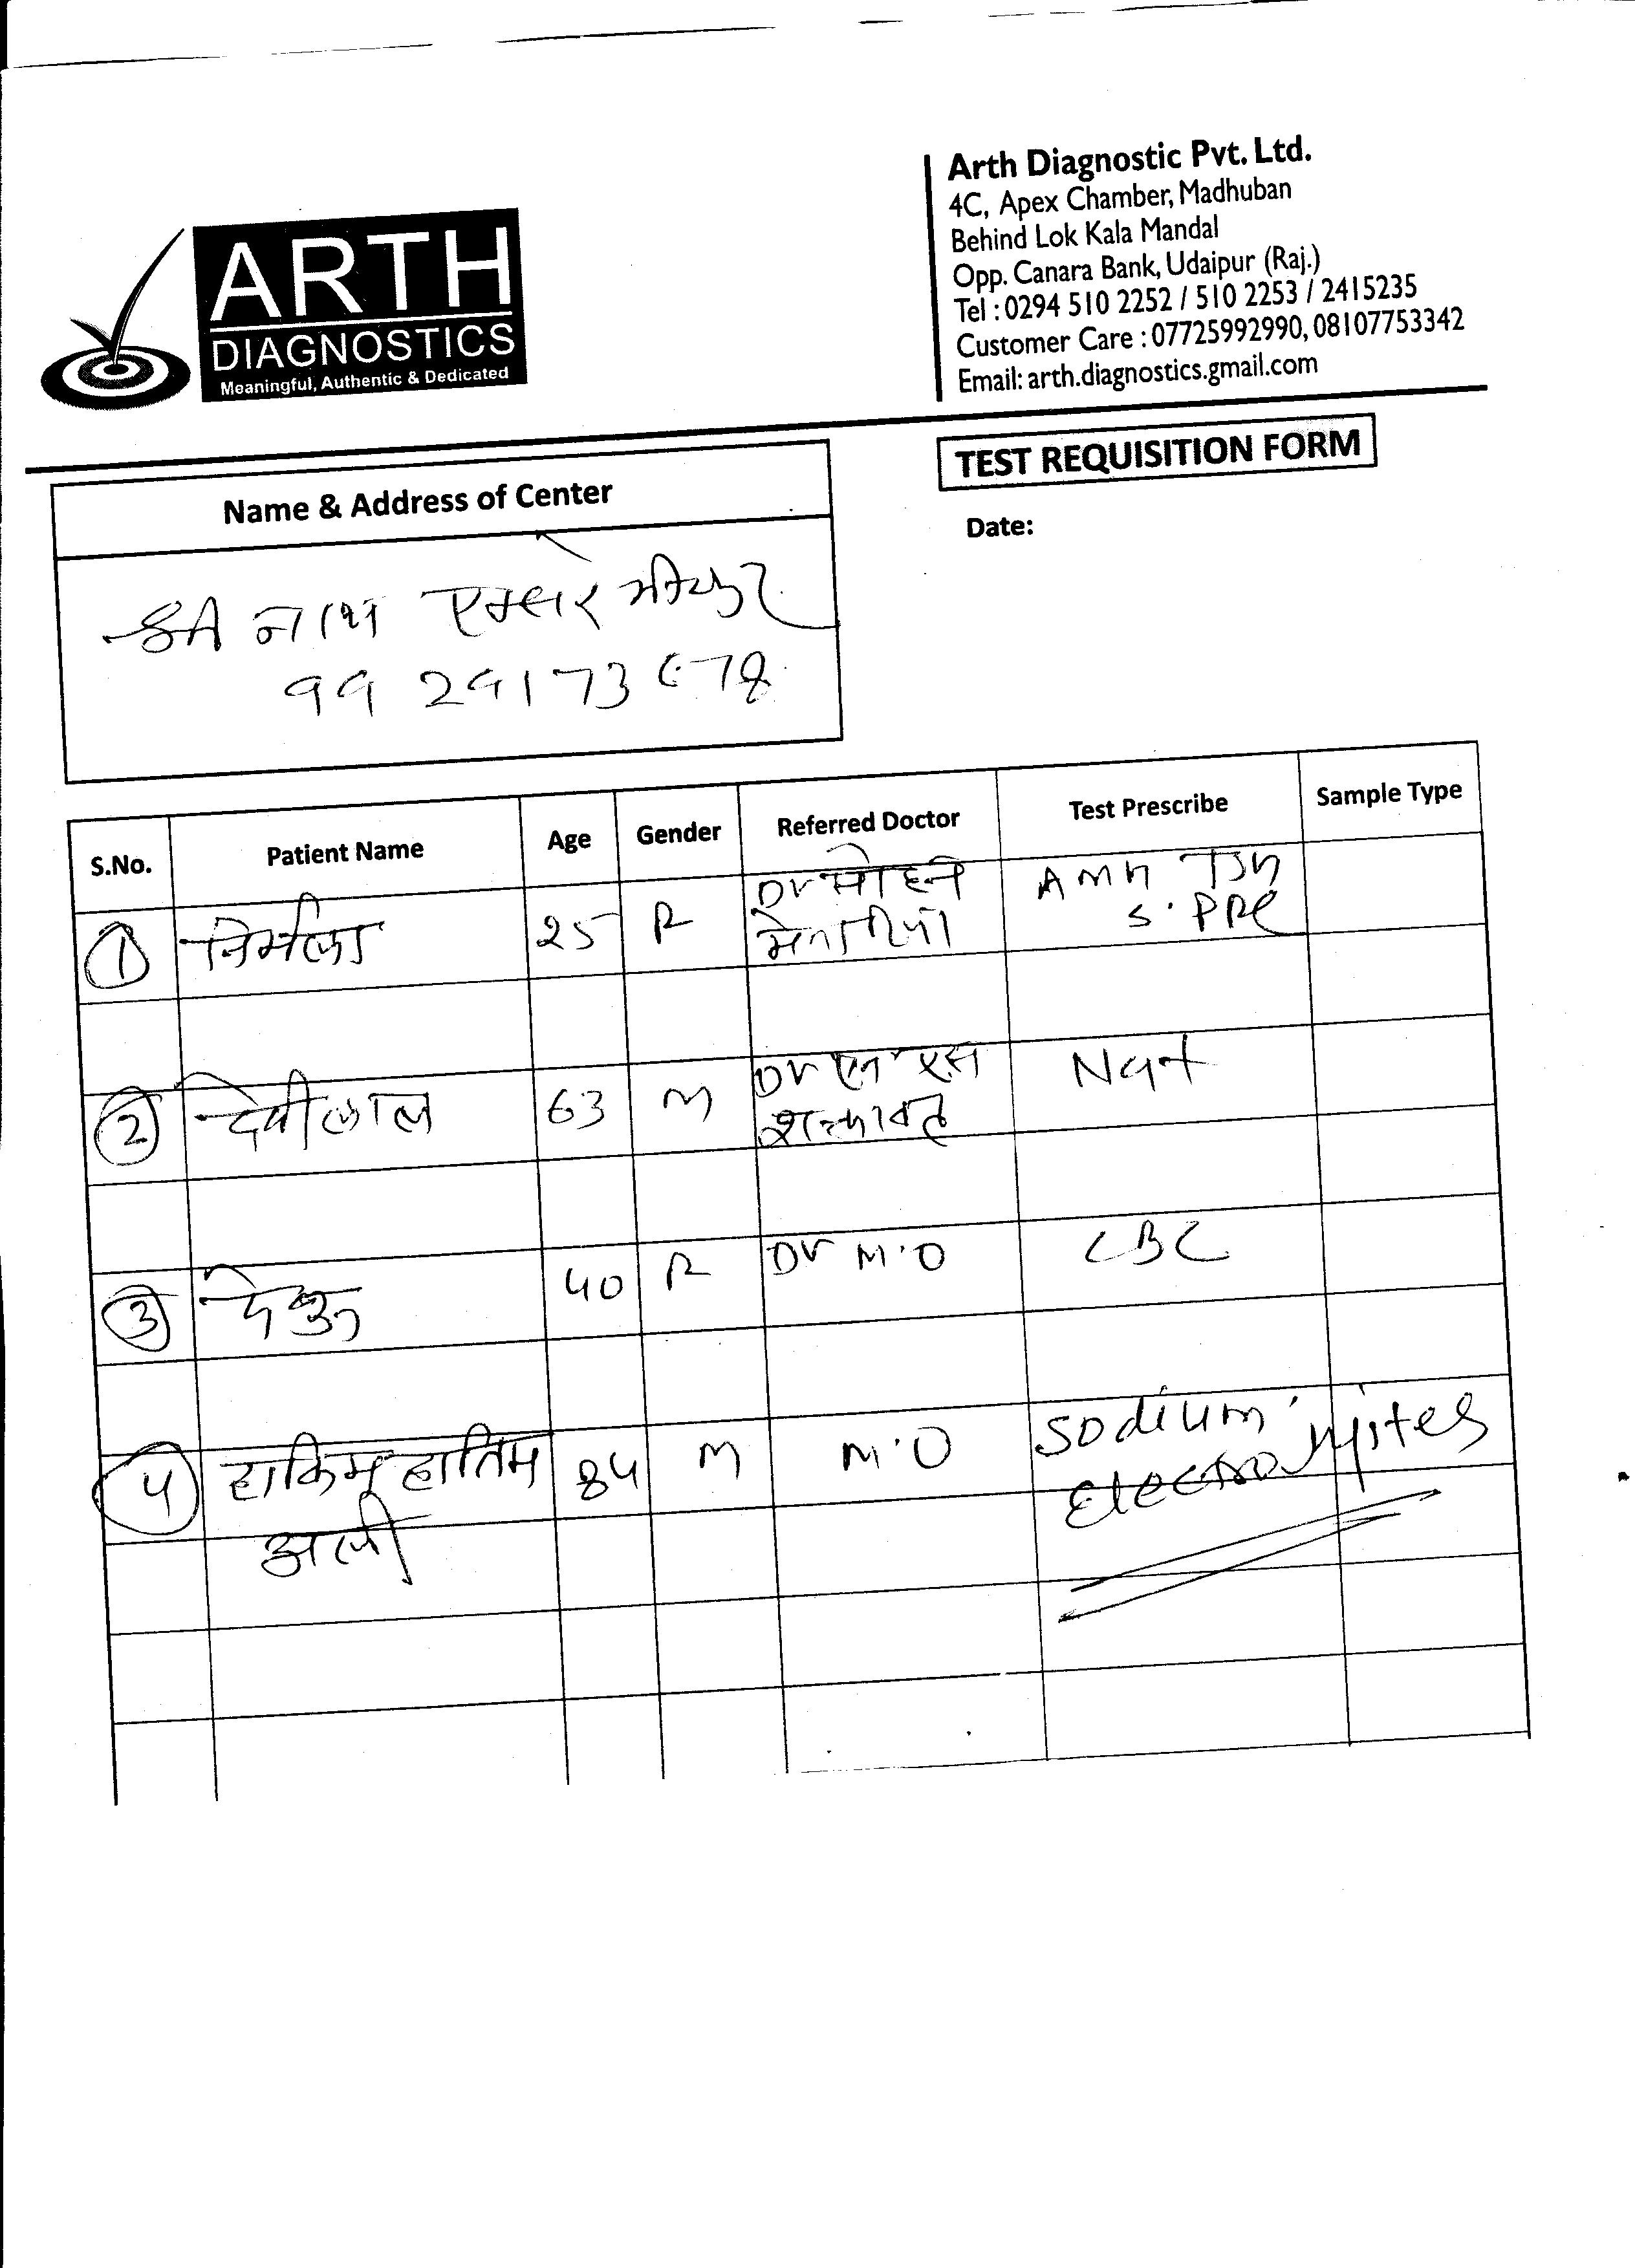 Arth Diagnostic Pvt. Ltd.
4C, Apex Chamber, Madhuban
Behind Lok Kala Mandal
Opp. Canara Bank, Udaipur (Raj.)
Tel : 0294 510 2252 / 510 2253 / 2415235
Customer Care : 07725992990, 08107753342
Email: arth.diagnostics.gmail.com
ARTH
DIAGNOSTICS
Meaningful, Authentic & Dedicated
TEST REQUISITION FORM
Date:
Name & Address of Center
श्री नाथ एक्सरे
S.No. Patient Name Age Gender Referred Doctor Test Prescribe Sample Type
1 निर्मला 25 F Dr मोहन AMH TSH
मेनारिया S.PRL
2 देवीलाल 63 M Dr एन एस Na+
शक्तावत
3 40 F Dr M.O CBC
4 हाकिम हातिम 84 M M.O Sodium
अली